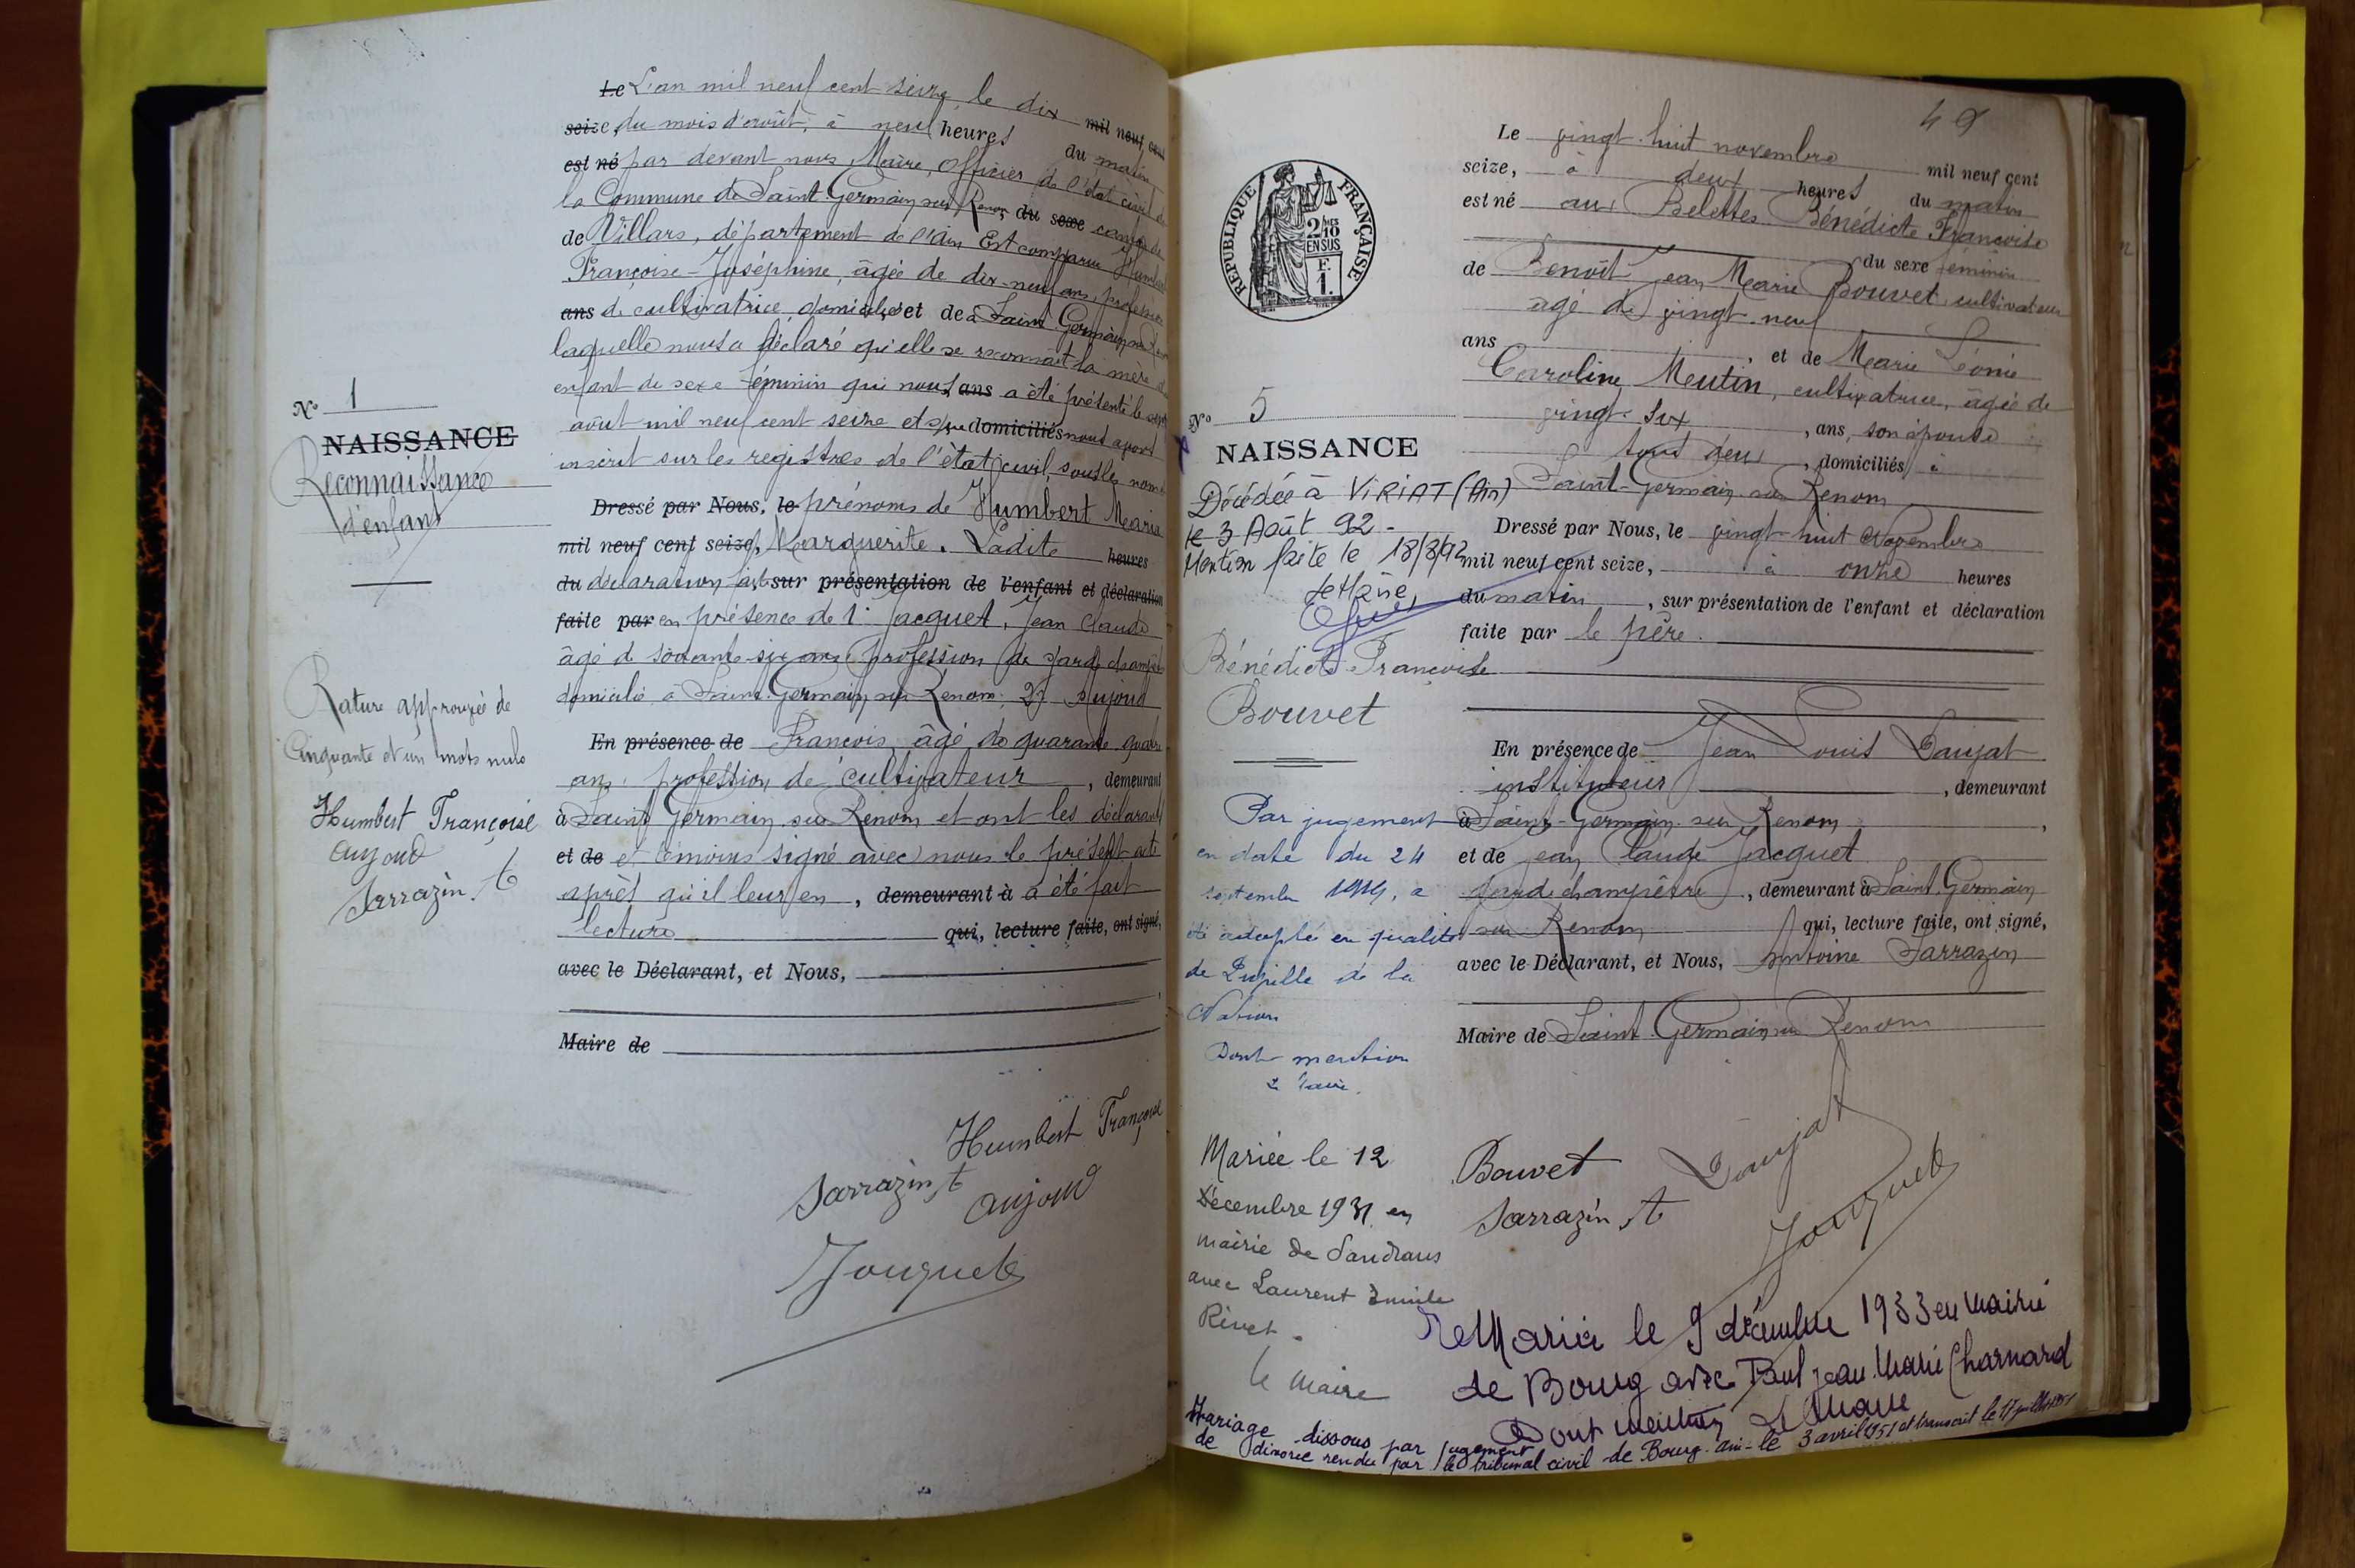 Le L'an mil neuf cent seize, le dix mil neuf cent
seize, du mois d'août, à neuf heures du matin,
est né par devant nous, Maire, officier de l'état civil de
la Commune de Saint Germain sur Renom, du sexe canton de
de Villars, département de l'Ain Est comparue Humbert
Françoise-Joséphine, âgée de dix-neuf ans, profession
ans de cultivatrice, domiciliée et de à Saint Germain sur Renom
laquelle nous a déclaré qu'elle se reconnait la mère d
enfant de sexe féminin qui nous, ans a été présenté le
août mil neuf cent seize et que domiciliés nous avons
inscrit sur les registres de l'état civil, sous les noms
N° 1
NAISSANCE
Reconnaissance
d'enfant
Dressé par Nous, le prénoms de Humbert Marie
mil neuf cent seize, Marguerite. Ladite heures
du déclaration faite sur présentation de l'enfant et déclaration
faite par en présence de 1° Jacquet, Jean Claude
âgé de soixante-six ans profession de garde champêtre
domicilié à Saint-Germain sur Renom; 2° Aujoud
Rature approuvée de
Cinquante et un mots nuls
Humbert Françoise
Aujoud
Sarrazin A
En présence de François, âgé de quarante quatre
ans, profession de cultivateur, demeurant
à Saint Germain sur Renom et ont les déclarant
et de et témoins signé avec nous le présent acte
après qu'il leur en, demeurant à a été fait
lecture qui, lecture faite, ont signé,
avec le Déclarant, et Nous,
Maire de
Humbert Françoise
Sarrazin A
Aujoud
Jacquet
49
RÉPUBLIQUE FRANÇAISE
2/10
EN SUS
Le vingt-huit novembre mil neuf cent
seize, à deux heures du matin
est né aux Belettes Bénédicte Françoise
du sexe féminin
de Benoît Jean Marie Bouvet, cultivateur
âgé de vingt-neuf
ans, et de Marie Léonie
Caroline Meutin, cultivatrice, âgée de
vingt-six, ans, son épouse
tous deux, domiciliés à
Saint-Germain sur Renom
N° 5
NAISSANCE
Décédée à VIRIAT (Ain)
le 3 Août 92 -
Mention faite le 18/8/92
le Maire,
Bénédicte Françoise
Bouvet
Dressé par Nous, le vingt-huit Novembre
mil neuf cent seize, à onze heures
du matin, sur présentation de l'enfant et déclaration
faite par le père.
En présence de Jean Louis Daujat
instituteur, demeurant
à Saint-Germain sur Renom,
et de Jean Claude Jacquet
garde champêtre, demeurant à Saint Germain
sur Renom qui, lecture faite, ont signé,
avec le Déclarant, et Nous, Antoine Sarrazin
Maire de Saint Germain sur Renom
Par jugement
en date du 24
septembre 1919, a
été adoptée en qualité
de Pupille de la
Nation
Dont mention
Le Maire.
Bouvet
Daujat
Sarrazin A
Jacquet
Mariée le 12
décembre 1931 en
mairie de Sandrans
avec Laurent Emile
Rivet.
le Maire
Remariée le 9 décembre 1933 en mairie
de Bourg avec Paul Jean Marie Charnard
Dont mention Le Maire
Mariage dissous par jugement
de divorce rendu par le tribunal civil de Bourg. Ain - le 3 avril 1951 et transcrit le 17 juillet 1951